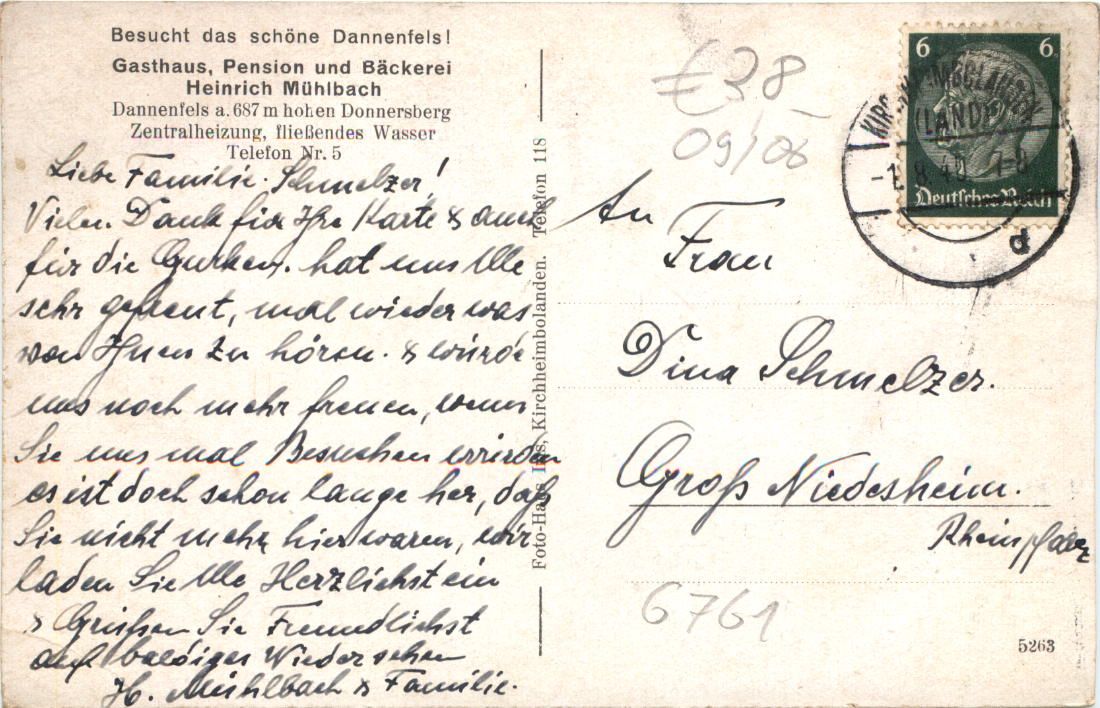 Besucht das schöne Dannenfels!
Gasthaus, Pension und Bäckerei
Heinrich Mühlbach
Dannenfels a. 687 m hohen Donnersberg
Zentralheizung, fließendes Wasser
Telefon Nr. 5
Liebe Familie Schmelzer!
Vielen Dank für Ihre Karte & auch
für die Gurken. hat uns Alle
sehr gefreut, mal wieder was
von Ihnen zu hören. & würde
uns noch mehr freuen, wenn
Sie uns mal Besuchen würden
es ist doch schon lange her, daß
Sie nicht mehr hier waren, wir
laden Sie Alle Herzlichst ein
& Grüßen Sie Freundlichst
auf baldiges Wiedersehen
H. Mühlbach & Familie.
Foto-Haus, Kirchheimbolanden. Telefon 118
€38
09/06
6 6
Deutsches Reich
(LAND)
-1.8.40 7-8
d
An
Frau
Dina Schmelzer.
Groß Niedesheim.
Rheinpfalz
6761
5263